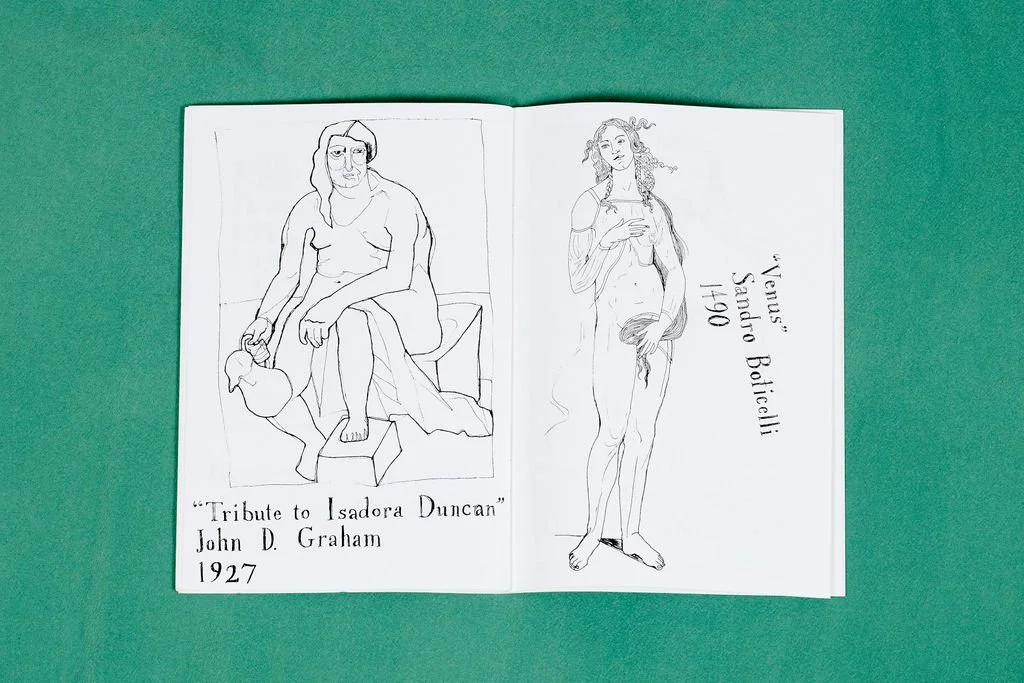 “Tribute to Isadora Duncan”
John D. Graham
1927
“Venus”
Sandro Boticelli
1490